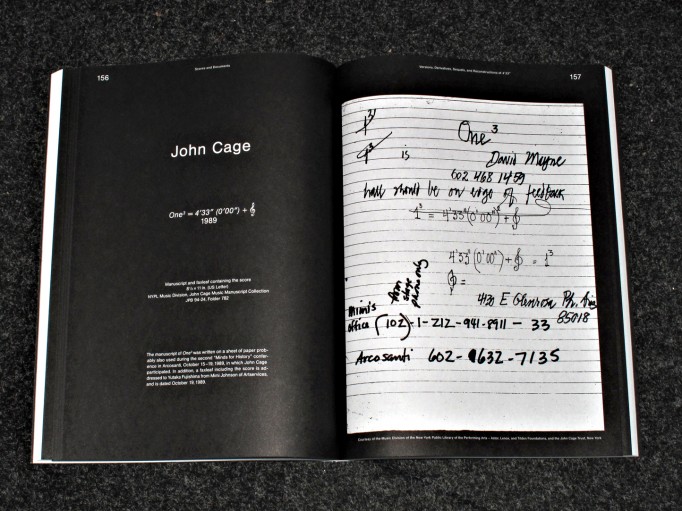 156
Scores and Documents
John Cage
One³ = 4'33" (0'00") + 𝄞
1989
Manuscript and faxtext containing the score
8½ x 11 in. (US Letter)
NYPL Music Division, John Cage Music Manuscript Collection
JPB 94-24, Folder 782
The manuscript of One³ was written on a sheet of paper prob-
ably also used during the second "Minds for History" confer-
ence in Arcosanti, October 15–19, 1989, in which John Cage
participated. In addition, a faxtext including the score is ad-
dressed to Yutaka Fujishima from Mimi Johnson of Artservices,
and is dated October 19, 1989.
Versions, Derivatives, Sequels, and Reconstructions of 4'33"
157
One³
1³ is David Mayne
602 468 1459
hall should be on edge of feedback
1³ = 4'33"(0'00") + 𝄞
4'33"(0'00") + 𝄞 = 1³
𝄞 =
from stage phone only
4131 E
85018
Mimi's
office (102)-1-212-941-8911 - 33
Arcosanti 602-632-7135
Courtesy of the Music Division of the New York Public Library of the Performing Arts – Astor, Lenox, and Tilden Foundations, and the John Cage Trust, New York